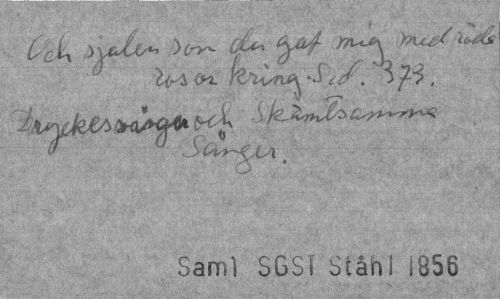 Och sjalen som du gaf mig med röda
rosor kring. Sid. 373.
Dryckessånger och Skämtsamma
Sånger.
Saml SGS1 Ståhl 1856